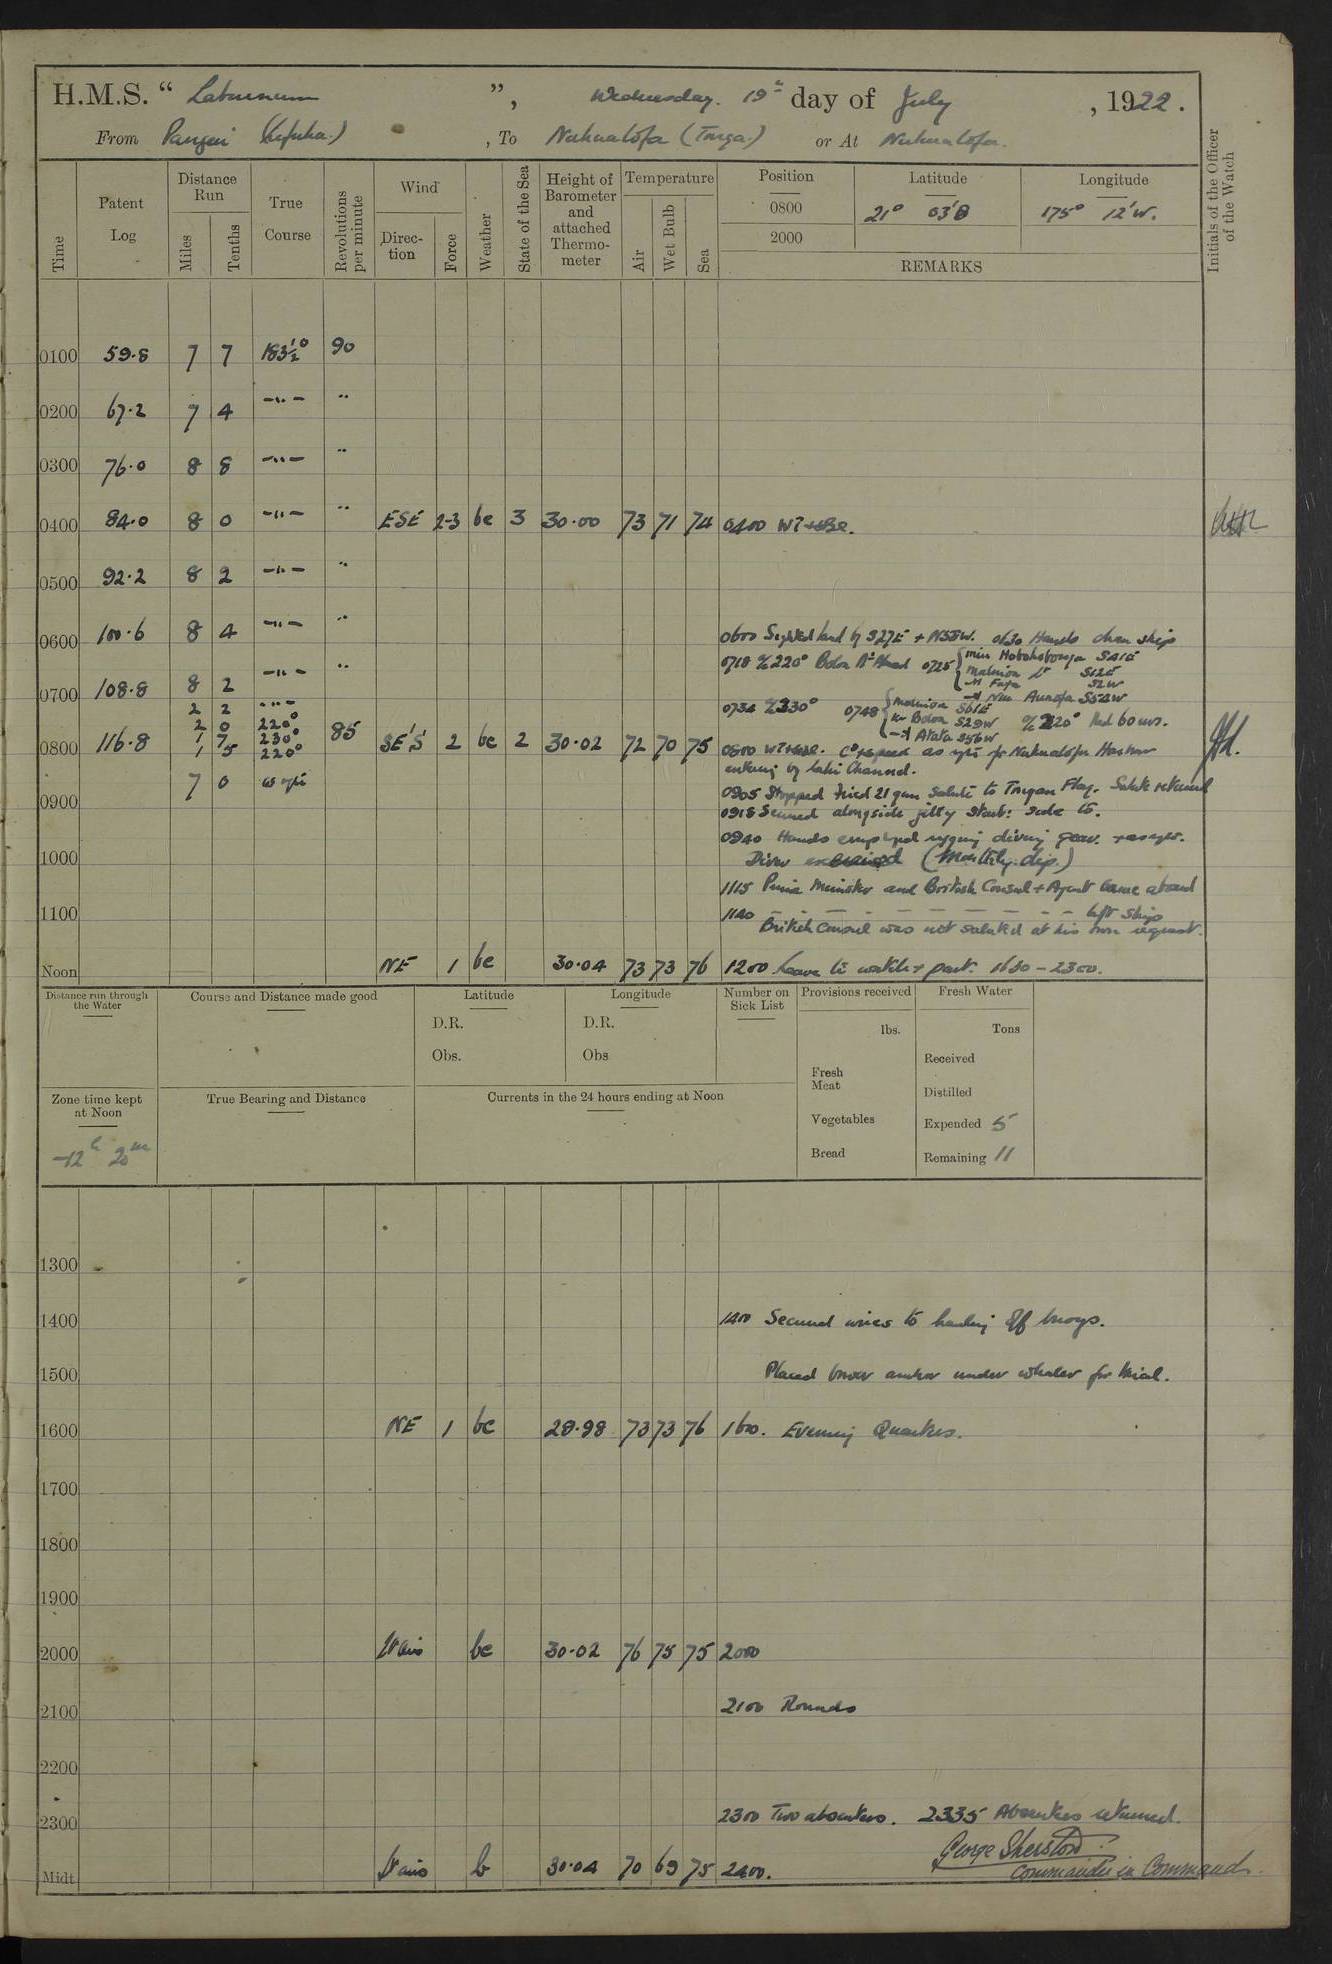 H.M.S. “ Laburnum ”, Wednesday. 19th day of July , 1922.
From Pangai (Lifuka.) , To Nukualofa (Tonga.) or At Nukualofa.
Time
Patent Log
Distance Run
Miles
Tenths
True Course
Revolutions per minute
Wind
Direction
Force
Weather
State of the Sea
Height of Barometer and attached Thermometer
Temperature
Air
Wet Bulb
Sea
Position
0800
2000
Latitude
21° 03' S
Longitude
175° 12' W.
REMARKS
Initials of the Officer of the Watch
0100 59.8 7 7 183½° 90
0200 67.2 7 4 -"- "
0300 76.0 8 8 -"- "
0400 84.0 8 0 -"- " ESE 2-3 bc 3 30.00 73 71 74 0400
0500 92.2 8 2 -"- "
0600 100.6 8 4 -"- " 0600 Sighted land S27E + N58W. 0630 Hands clean ship
0718 a/c 220° 0725
0700 108.8 8 2 -"- "
2 2 -"-
2 0 220° 0734 a/c 230° 0748 a/c 220° Red 60 urs.
1 7 230° 85
0800 116.8 1 5 220° SE'S 2 bc 2 30.02 72 70 75 0800 Co + speed as req for Nukualofa Harbour
entering by Channel.
7 0 as req
0900 0905 Stopped fired 21 gun salute to Tongan Flag. Salute returned
0918 Secured alongside jetty starb: side to.
0940 Hands employed rigging diving gear.
1000 Diver exercised (Monthly dip.)
1115 Prime Minister and British Consul + Agent came aboard
1100 1140 - - - - - - - left ship
British Consul was not saluted at his own request.
Noon NE 1 bc 30.04 73 73 76 1200 Leave to watch + part. 1630 – 2300.
Distance run through the Water
Course and Distance made good
Latitude
D.R.
Obs.
Longitude
D.R.
Obs
Number on Sick List
Provisions received
lbs.
Fresh Meat
Vegetables
Bread
Fresh Water
Tons
Received
Distilled
Expended 5
Remaining 11
Zone time kept at Noon
-12h 20m
True Bearing and Distance
Currents in the 24 hours ending at Noon
1300
1400 1400 Secured wires to hauling off buoys.
1500 Placed bower anchor under whaler for trial.
1600 NE 1 bc 29.98 73 73 76 1600. Evening Quarters.
1700
1800
1900
2000 Vais bc 30.02 76 75 75 2000
2100 2100 Rounds
2200
2300 2300 Two absentees. 2335 Absentees returned.
George Sherston
Midt Vais b 30.04 70 69 75 2400. Commander in Command.